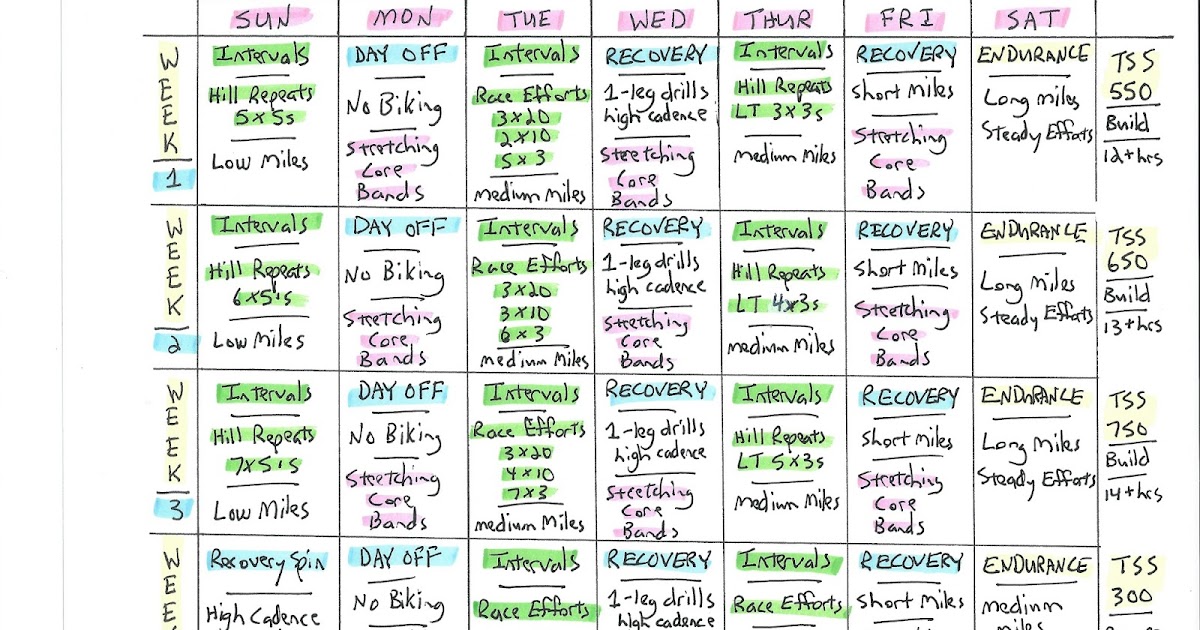 SUN MON TUE WED THUR FRI SAT
WEEK 1
Intervals
Hill Repeats
5x5s
Low Miles
DAY OFF
No Biking
Stretching
Core
Bands
Intervals
Race Efforts
3x20
2x10
5x3
medium Miles
RECOVERY
1-leg drills
high cadence
Stretching
Core
Bands
Intervals
Hill Repeats
LT 3x3s
medium Miles
RECOVERY
Short miles
Stretching
Core
Bands
ENDURANCE
Long miles
Steady Efforts
TSS
550
Build
12+hrs
WEEK 2
Intervals
Hill Repeats
6x5's
Low Miles
DAY OFF
No Biking
Stretching
Core
Bands
Intervals
Race Efforts
3x20
3x10
6x3
medium Miles
RECOVERY
1-leg drills
high cadence
Stretching
Core
Bands
Intervals
Hill Repeats
LT 4x3s
medium Miles
RECOVERY
Short miles
Stretching
Core
Bands
ENDURANCE
Long miles
Steady Efforts
TSS
650
Build
13+hrs
WEEK 3
Intervals
Hill Repeats
7x5's
Low Miles
DAY OFF
No Biking
Stretching
Core
Bands
Intervals
Race Efforts
3x20
4x10
7x3
medium Miles
RECOVERY
1-leg drills
high cadence
Stretching
Core
Bands
Intervals
Hill Repeats
LT 5x3s
medium Miles
RECOVERY
Short miles
Stretching
Core
Bands
ENDURANCE
Long Miles
Steady Efforts
TSS
750
Build
14+hrs
WEE
Recovery Spin
High Cadence
DAY OFF
No Biking
Intervals
Race Efforts
RECOVERY
1-leg drills
high cadence
Intervals
Race Efforts
RECOVERY
Short Miles
ENDURANCE
medium
miles
TSS
300